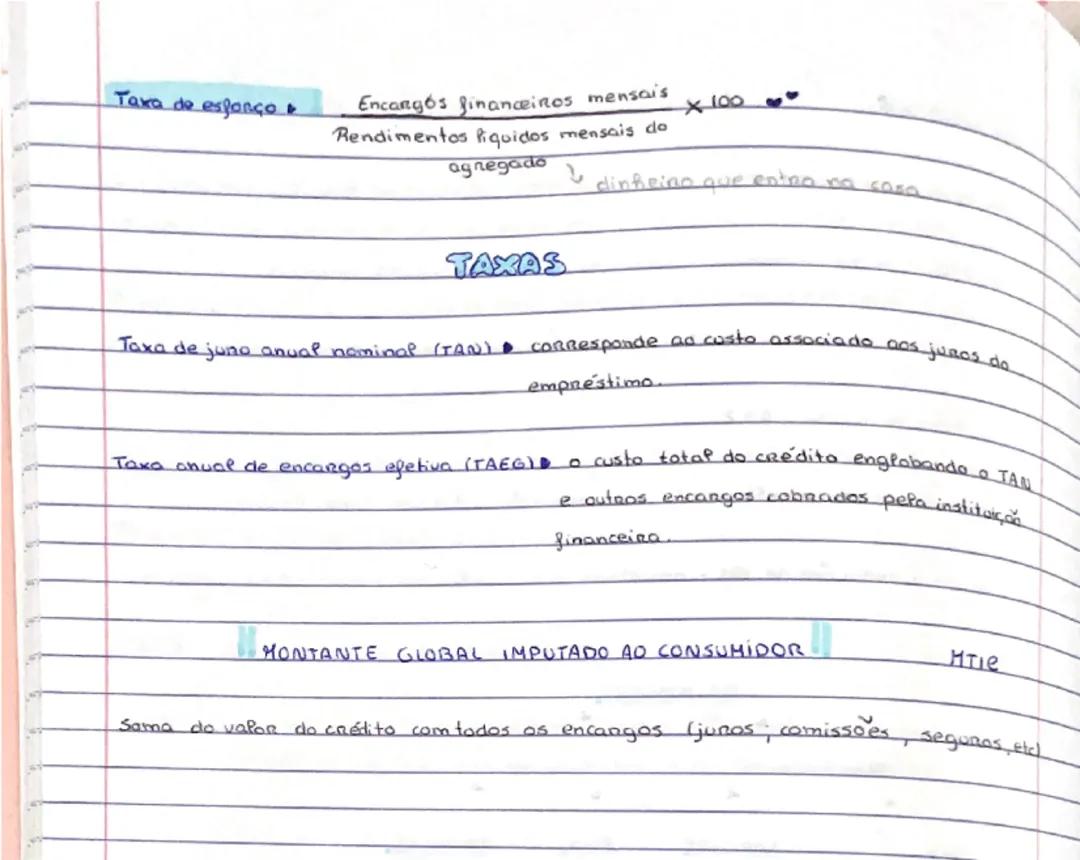 Taxa de esforço Encargos financeiros mensais x 100
Rendimentos líquidos mensais do
agregado
dinheiro que entra na casa
TAXAS
Taxa de juro anual nominal (TAN) corresponde ao custo associado aos juros do
empréstimo.
Taxa anual de encargos efetiva (TAEG) o custo total do crédito englobando o TAN
e outros encargos cobrados pela instituição
financeira.
MONTANTE GLOBAL IMPUTADO AO CONSUMIDOR
MTIC
Soma do valor do crédito com todos os encargos (juros; comissões, seguros, etc)